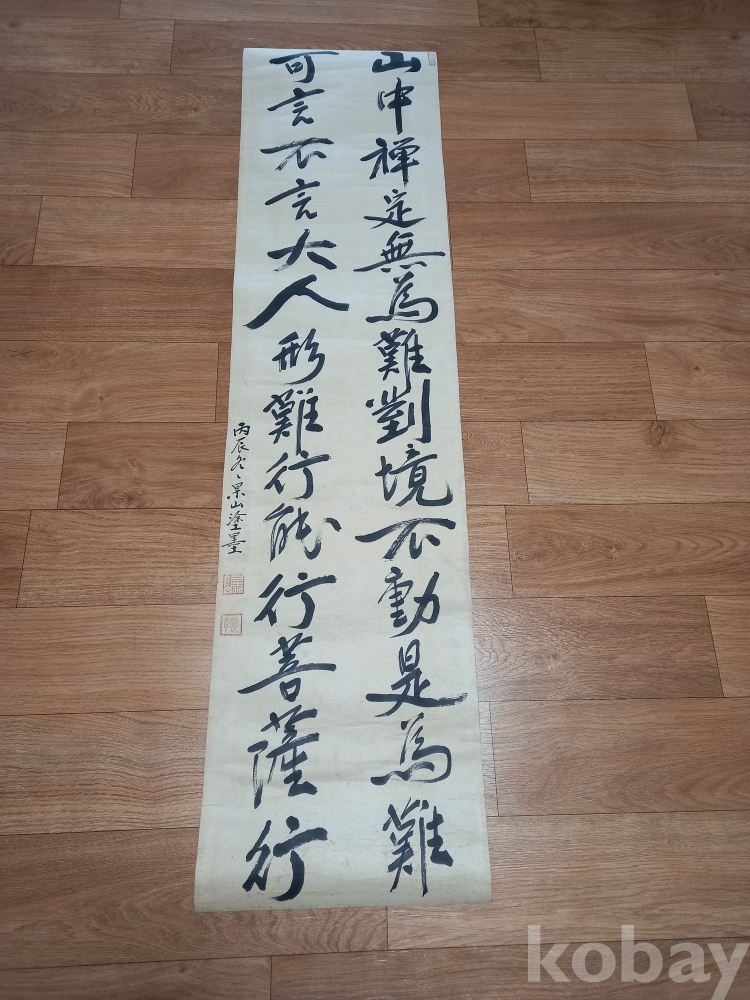 山中禅定無為難對境不動是為難
可言不言大人形難行能行菩薩行
丙辰冬〻杲山塗墨
kobay